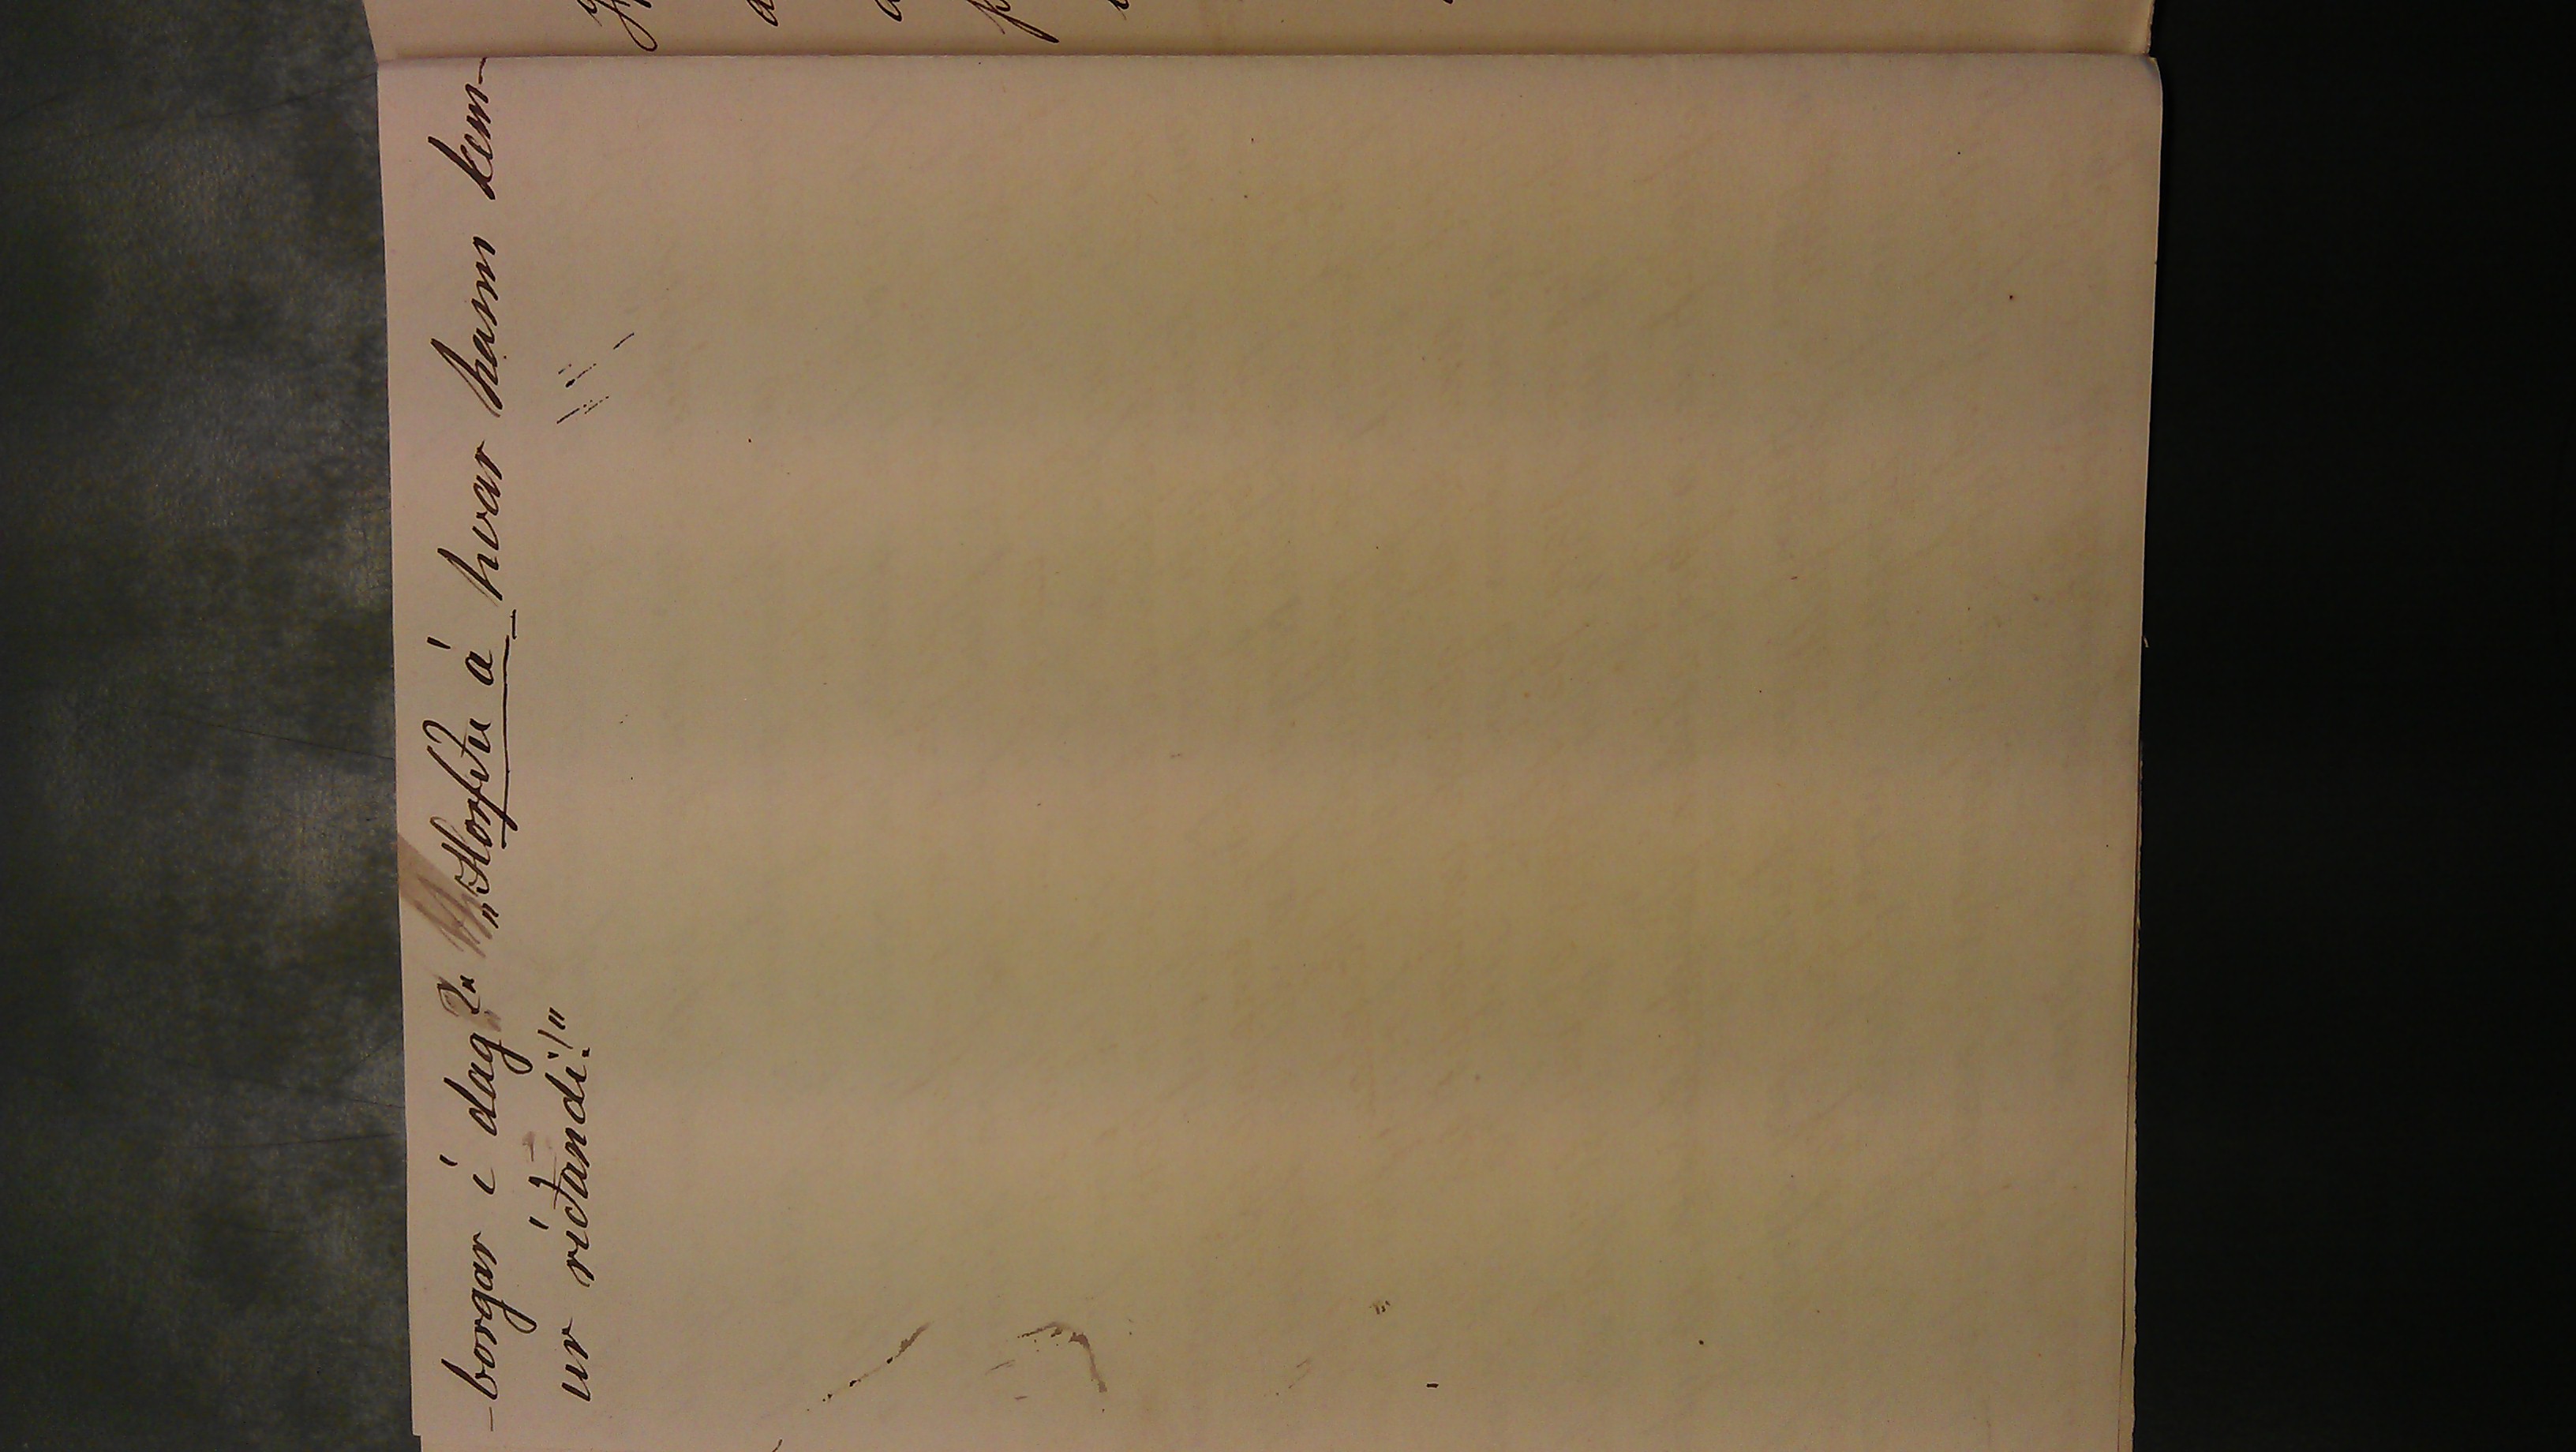 -borgar í dag?" „Horfðu á hvar hann kem-
ur ríðandi!"